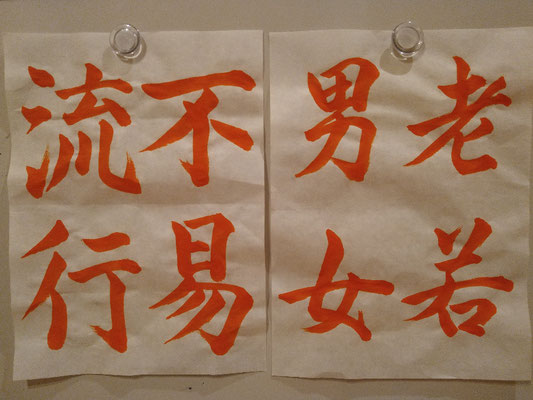 老若
男女
不易
流行